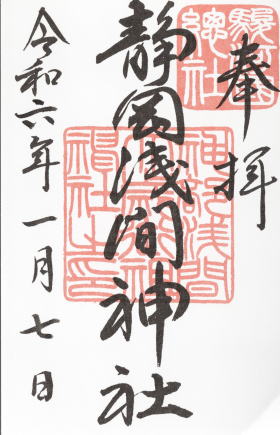 奉拝
駿河
總社
静岡浅間神社
令和六年一月七日